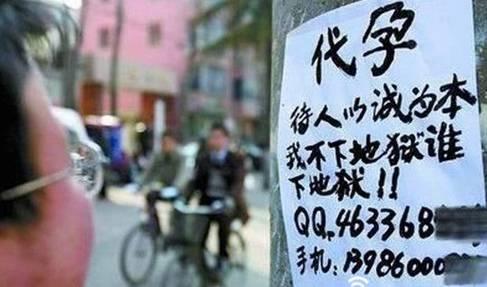 代孕
待人以诚为本
我不下地狱谁
下地狱!!
QQ:463368
手机:13986000